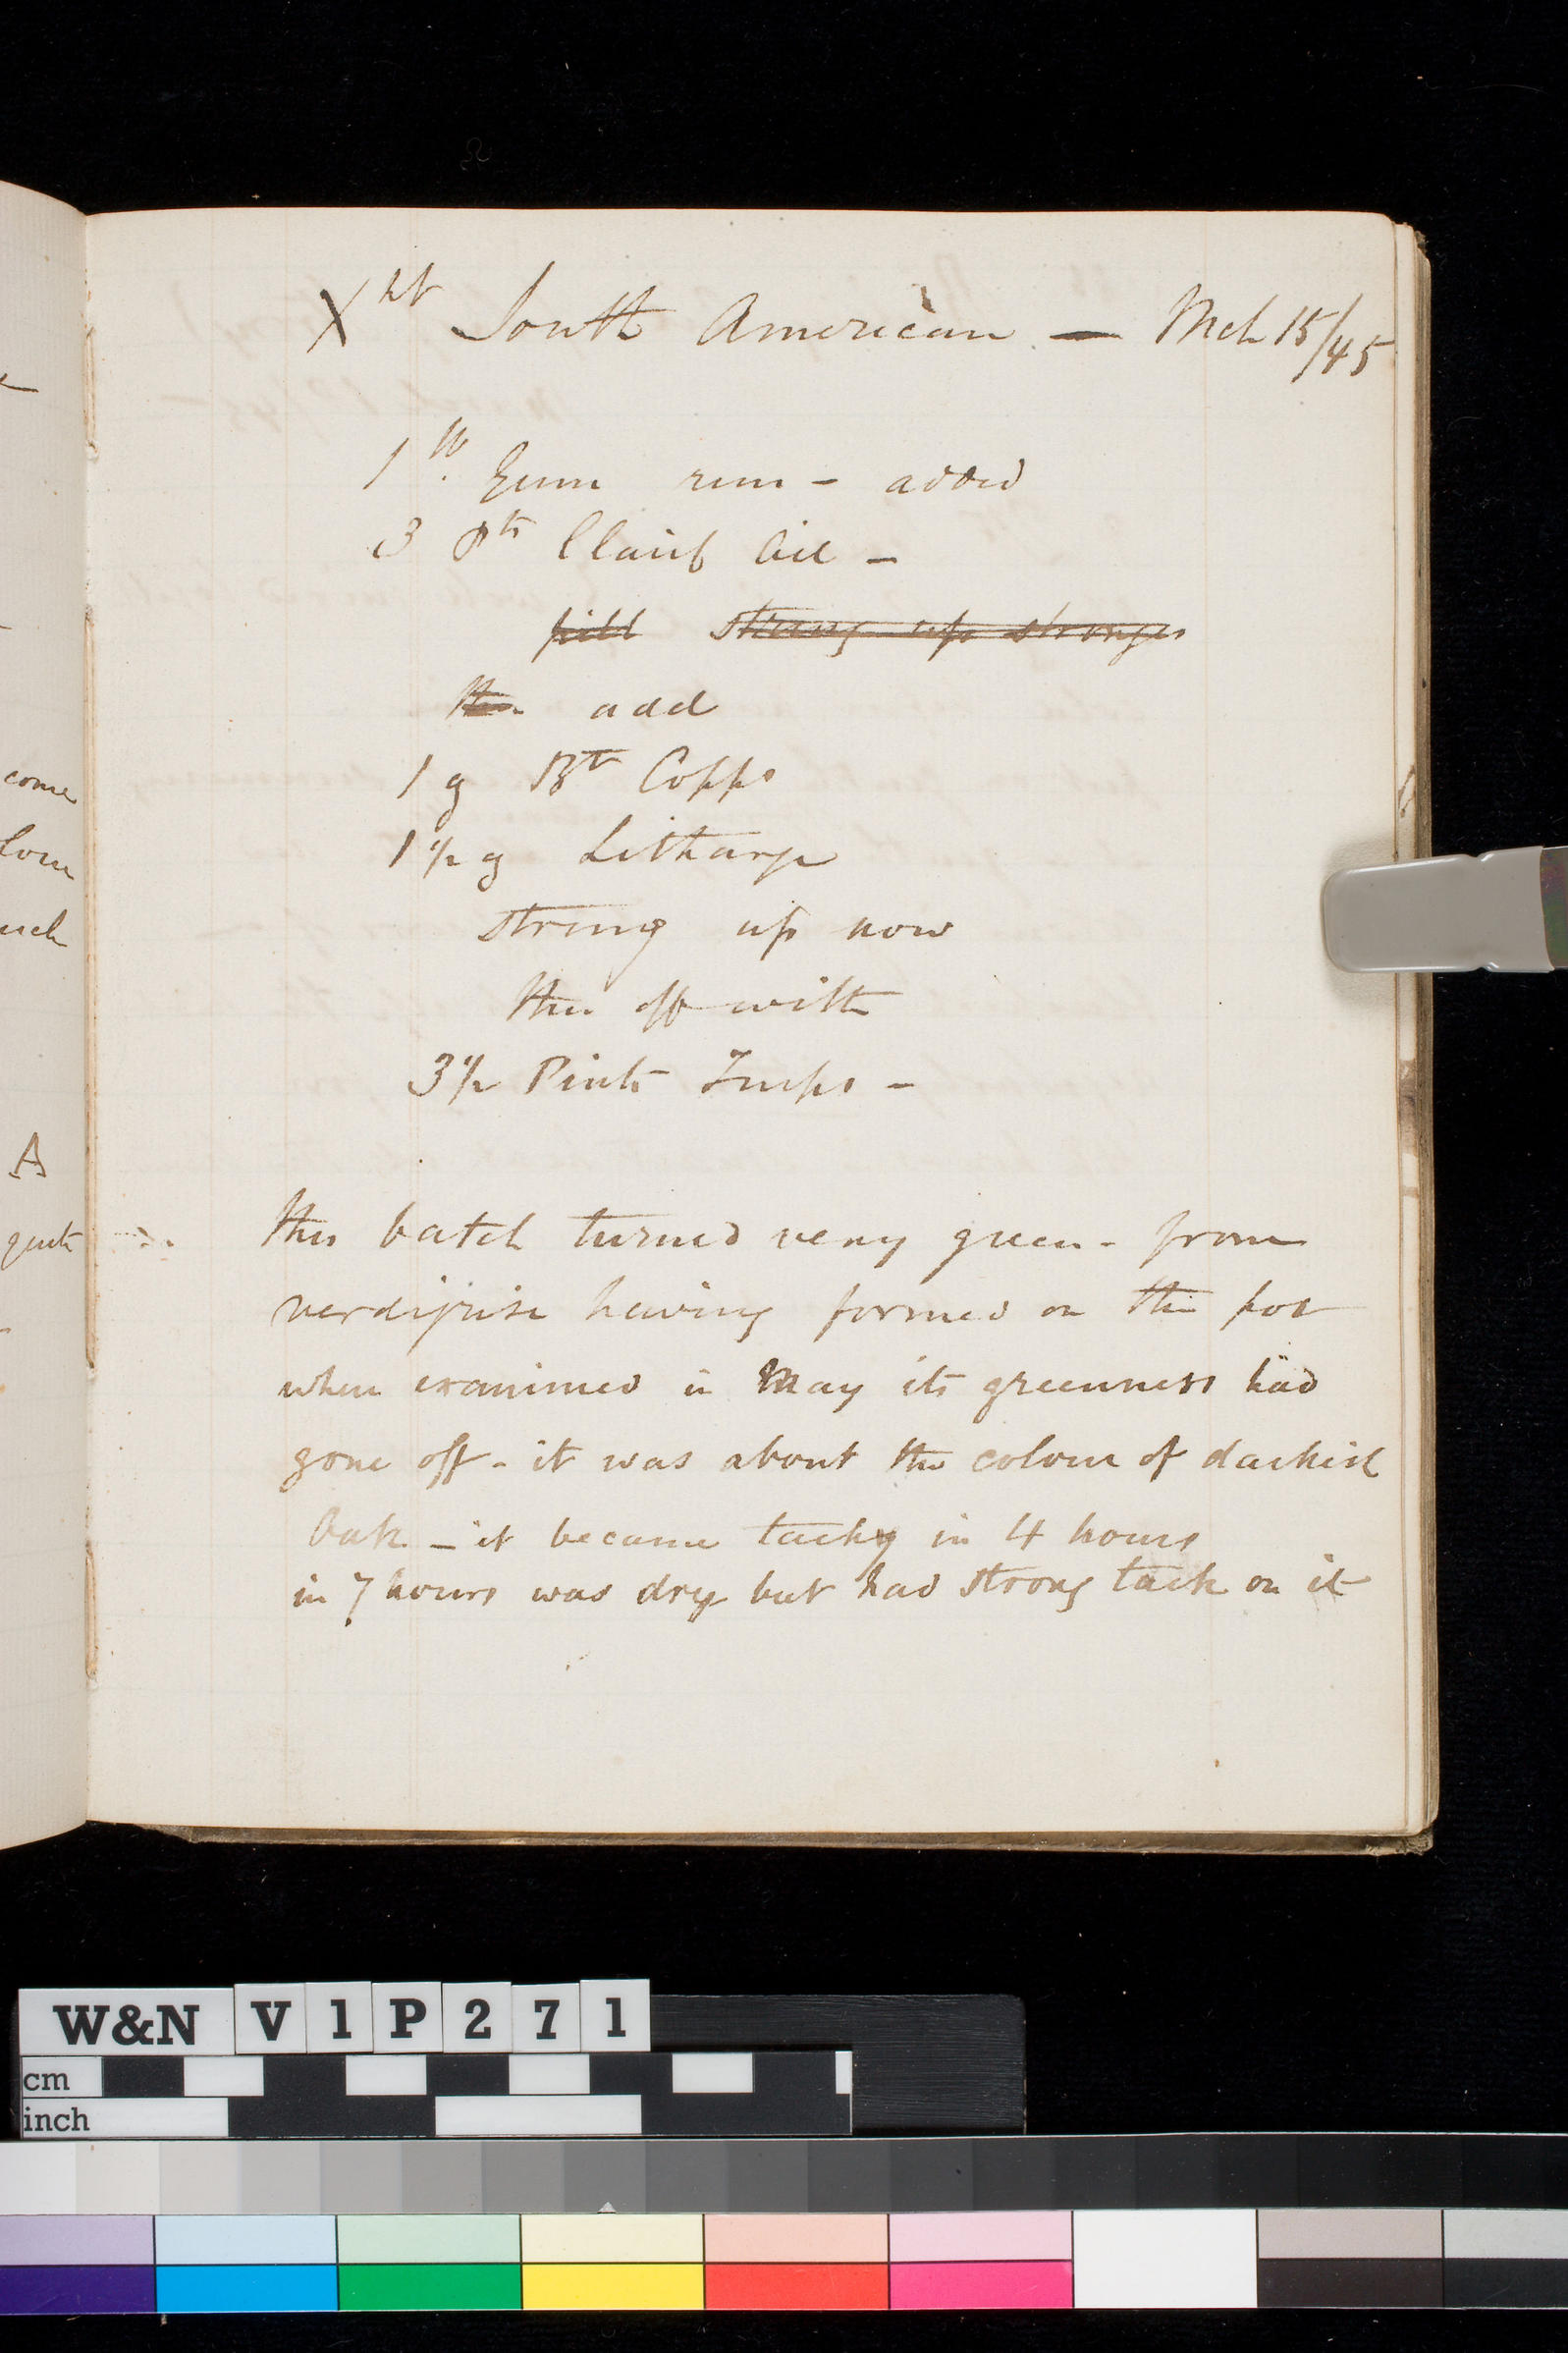 South American — Mch 15/45
1 lb. Gum run - added
3 Pts Clarif Oil -
till string up stronger
then add
1 g Bt Copps
1 1/2 g Litharge
string up now
then off with
3 1/2 Pints Turps -
this batch turned very green - from
verdigrise having formed on the pot
when examined in May its greenness had
gone off - it was about the colour of darkish
Oak - it became tacky in 4 hours
in 7 hours was dry but had strong tack on it
come
A
W&N V1P271
cm
inch